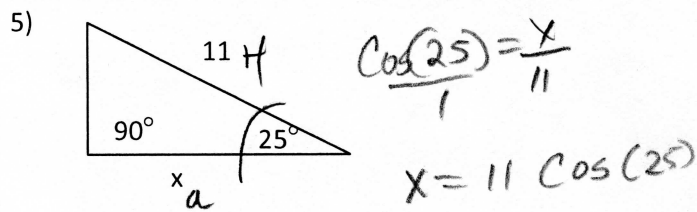 5)
11 H
90°
25°
x
a
Cos(25) = x
1 11
x = 11 Cos(25)